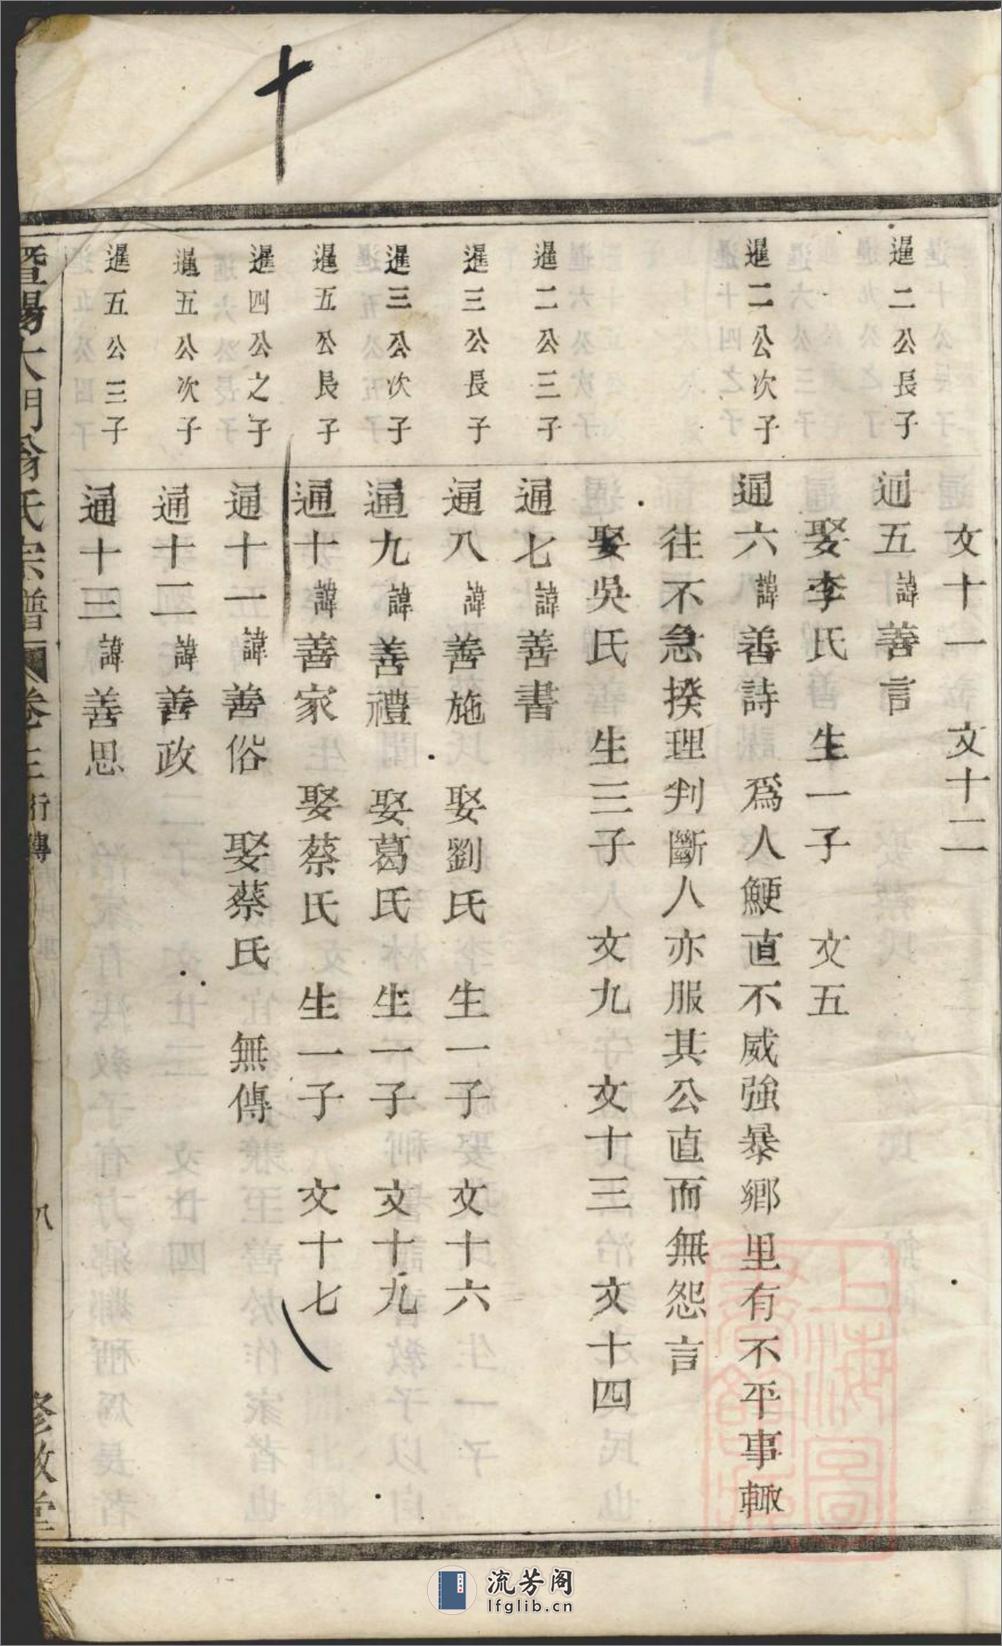 十
文十一 文十二
暹二公長子 通五諱善言
娶李氏 生一子 文五
暹二公次子 通六諱善詩 爲人鯁直不威強暴鄉里有不平事輙
往不急揆理判斷人亦服其公直而無怨言
娶吳氏 生三子 文九 文十三 文十四
暹二公三子 通七諱善書
暹三公長子 通八諱善施 娶劉氏 生一子 文十六
暹三公次子 通九諱善禮 娶葛氏 生一子 文十九
暹五公長子 通十諱善家 娶蔡氏 生一子 文十七
暹四公之子 通十一諱善俗 娶蔡氏 無傳
暹五公次子 通十二諱善政
暹五公三子 通十三諱善思
暨陽大門翁氏宗譜 卷之三 行傳 八 修敬堂
流芳阁
lfglib.cn